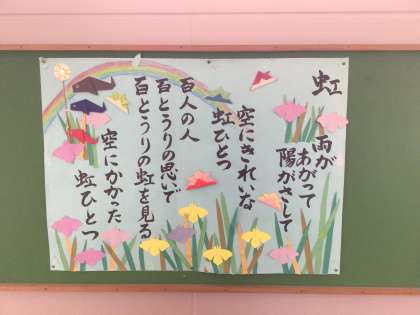 虹
雨が
あがって
陽がさして
空にきれいな
虹ひとつ
百人の人
百とうりの思いで
百とうりの虹を見る
空にかかった
虹ひとつ